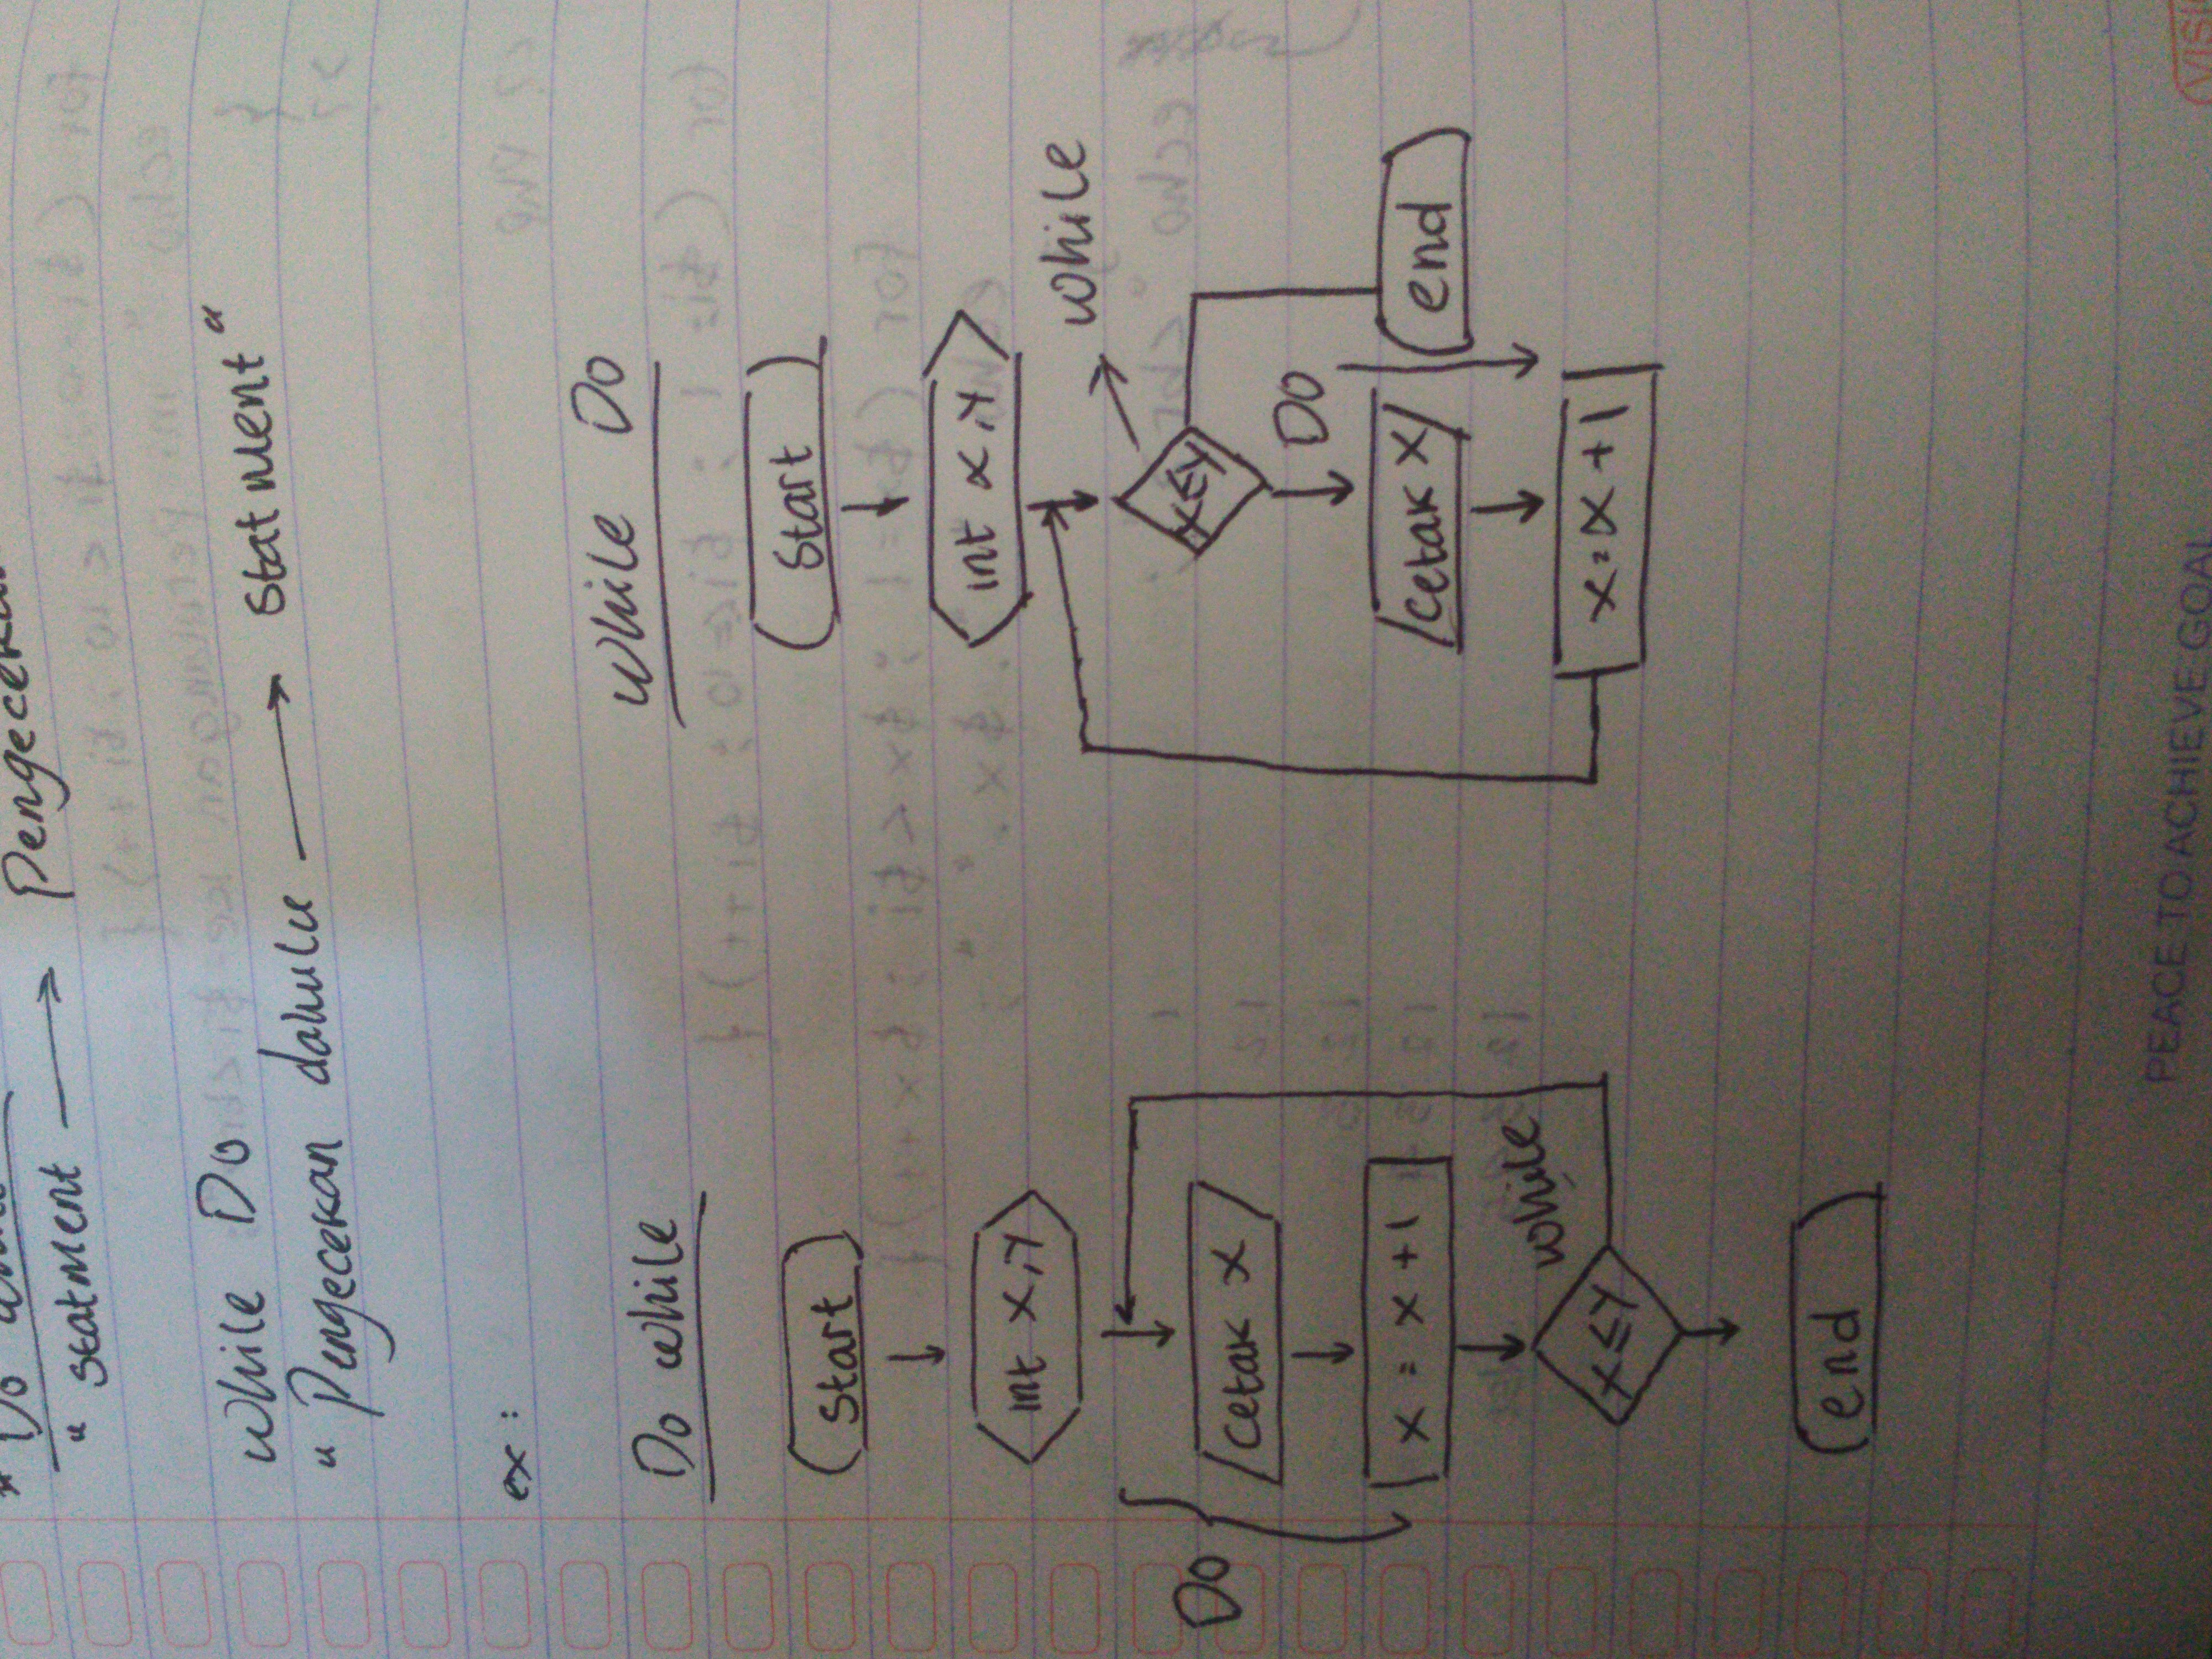 * Do while
" statment → Pengecekan
While Do
" Pengecekan dahulu → statment "
ex :
Do while
Start
int x,y
cetak x
x = x + 1
Do
while
x ≤ y
end
While Do
Start
int x,y
while
x≤y
Do
cetak x
x = x + 1
end
PEACE TO ACHIEVE GOAL
VISI